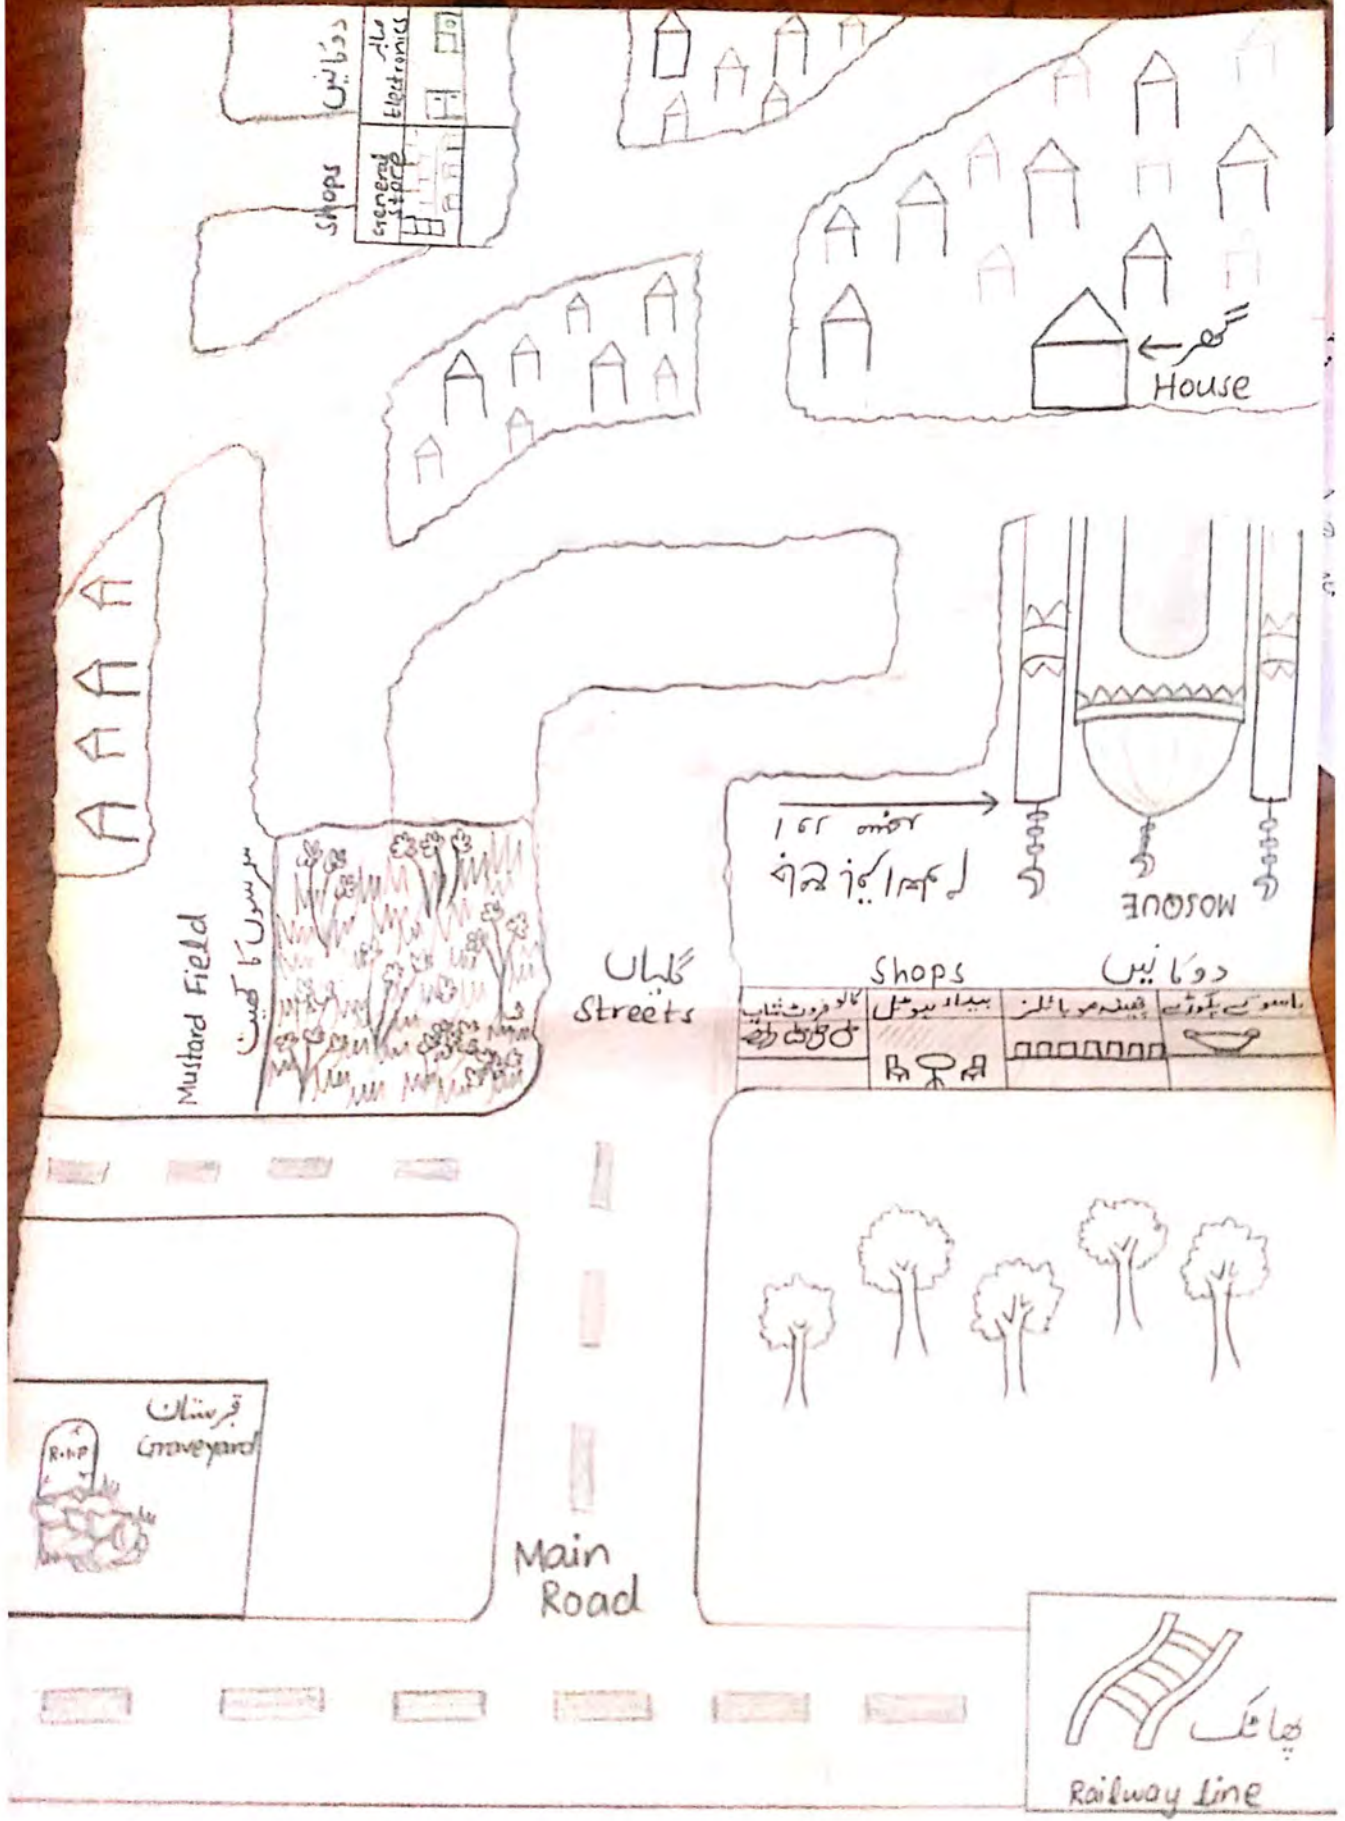 دوکانیں
Shops
صابر
Electronics
General
Store
گھر
House
MOSQUE
سرسوں کا کھیت
Mustard Field
گلیاں
Streets
Shops
دوکانیں
کالو فروٹ شاپ
چیمہ موبائلز
پکوڑے
قبرستان
Graveyard
R.I.P
Main
Road
پھاٹک
Railway line